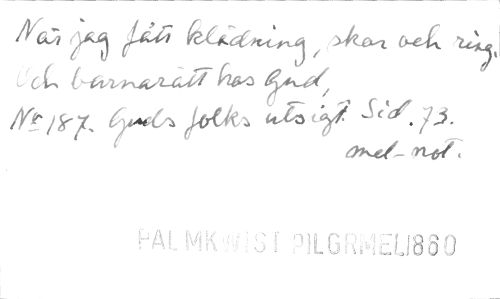 När jag fått klädning, skor och ring,
Och barnarätt hos Gud,
No 187. Guds folks utsigt. Sid. 73.
mel-not.
PALMKWIST PILGRMEL1860